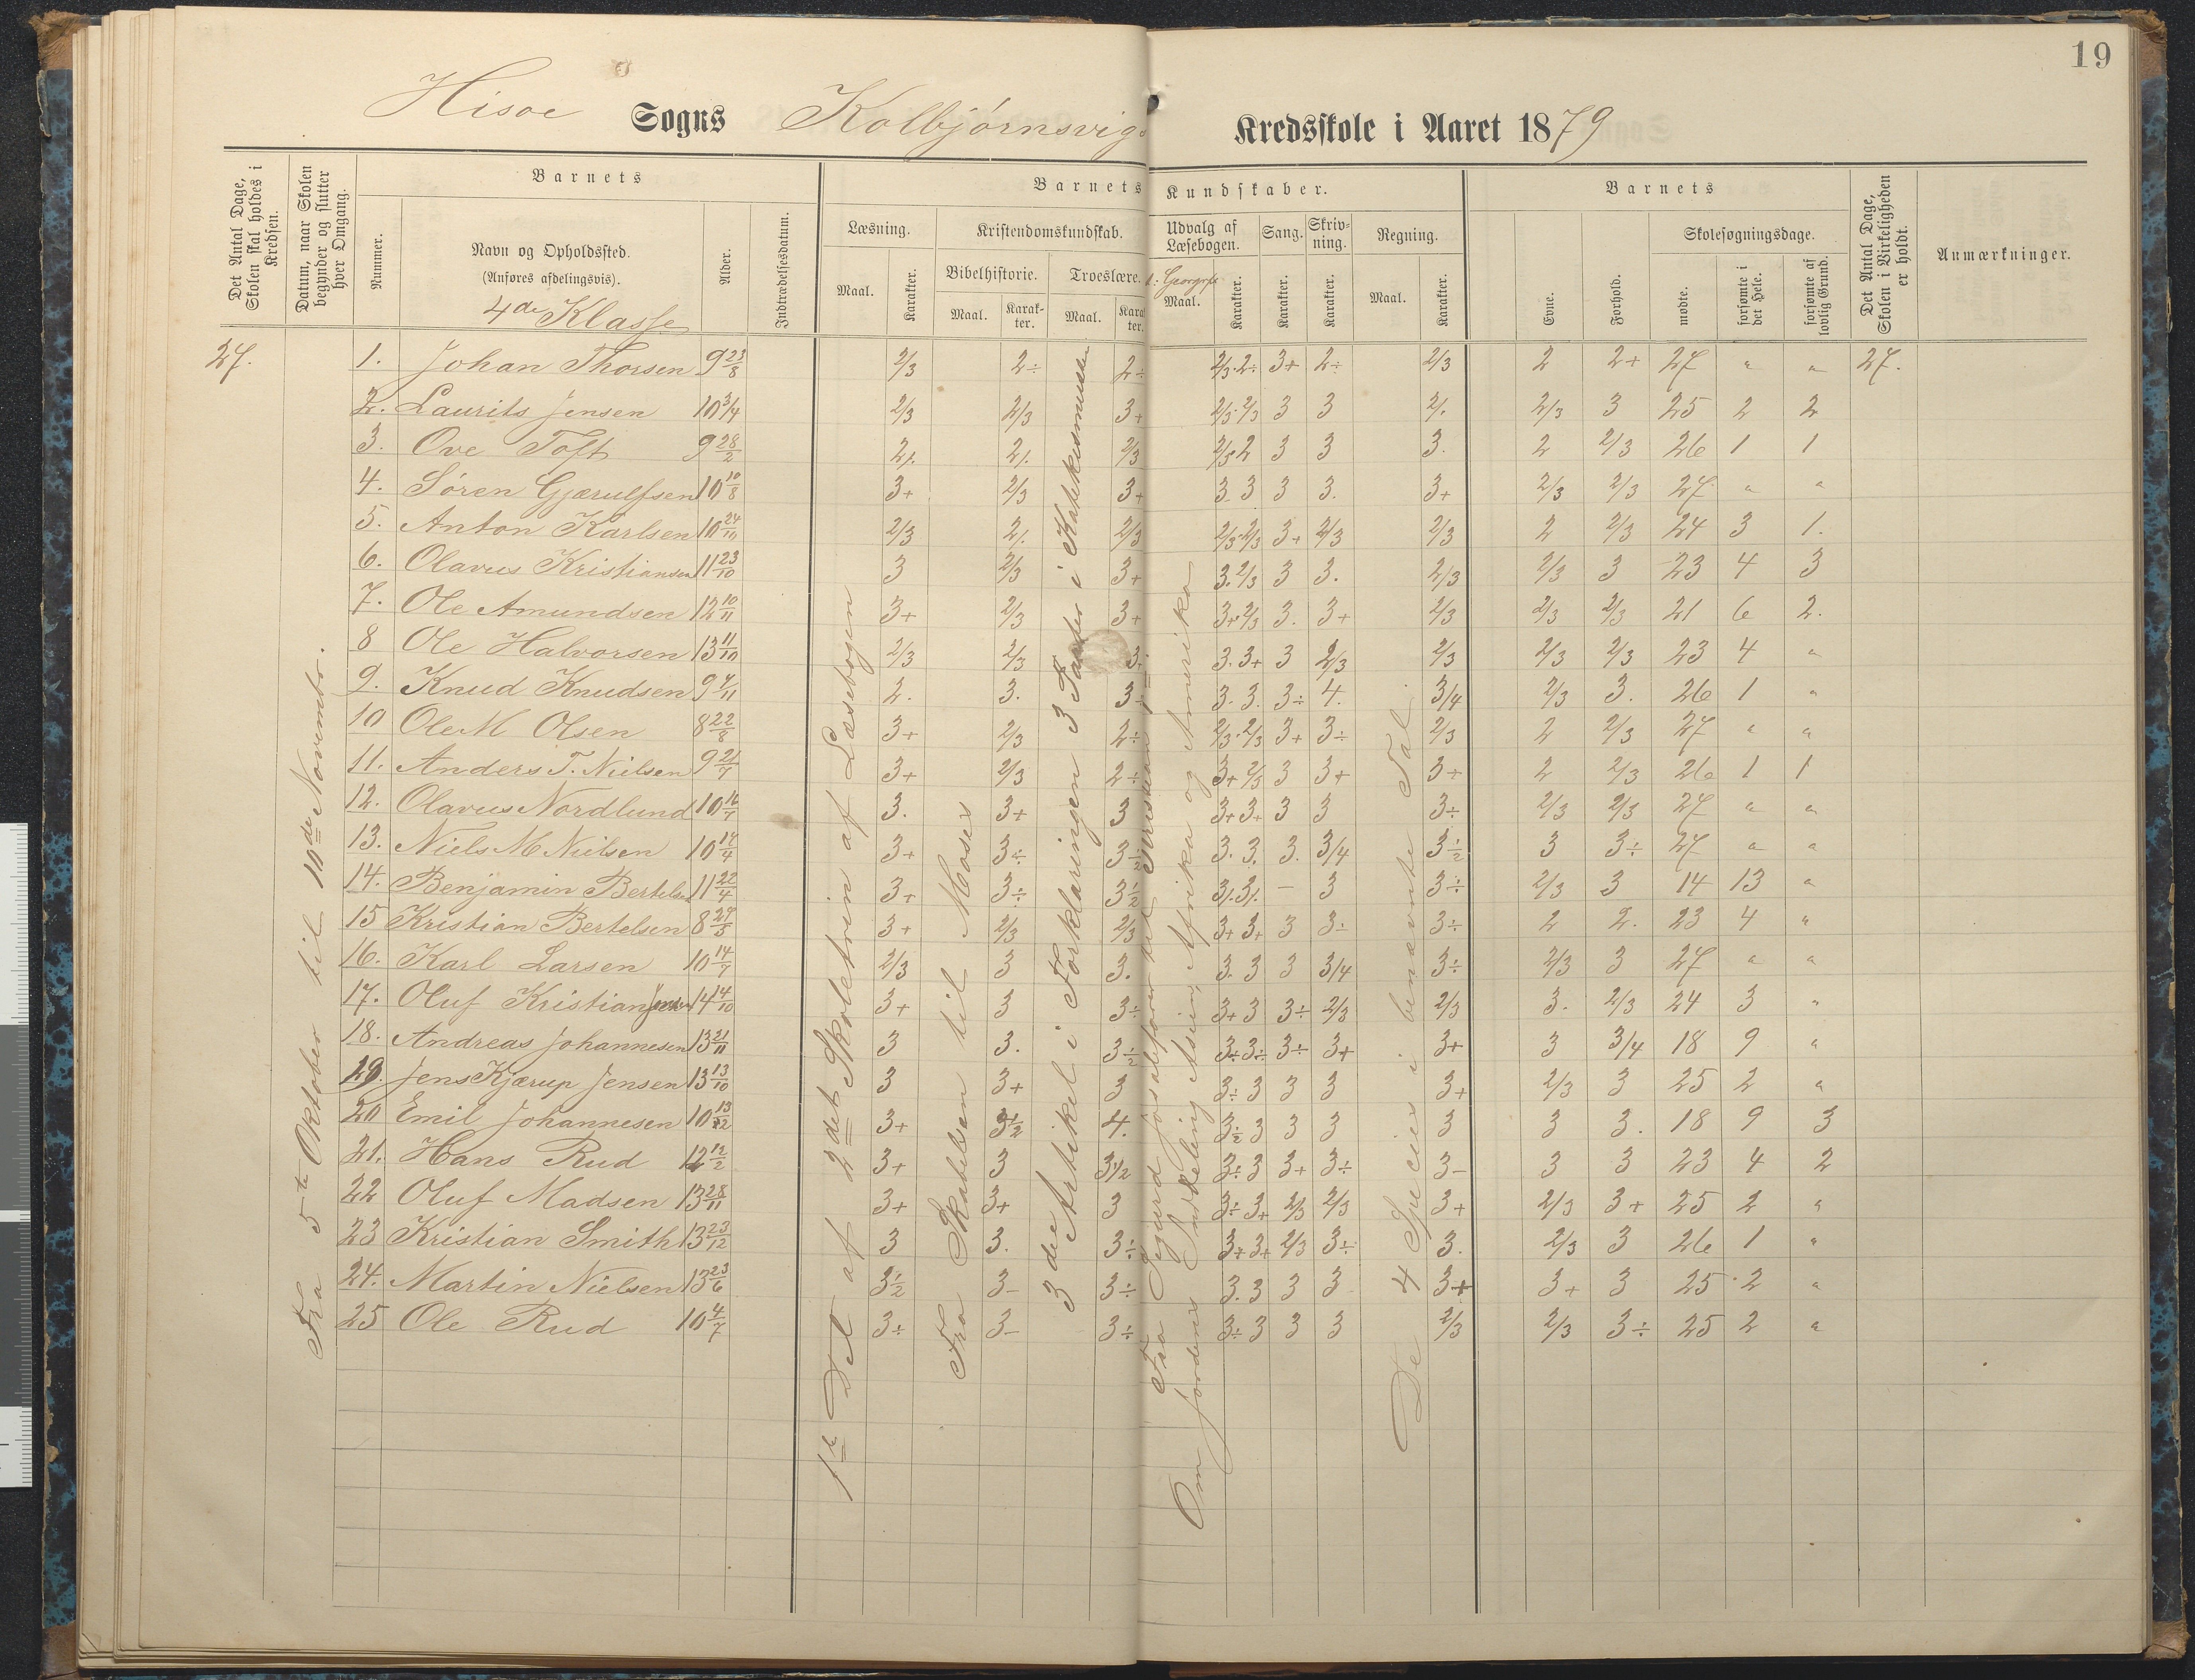 19
Hisøe Sogns Kolbjørnsvigs Kredsskole i Aaret 1879
Det Antal Dage, Skolen skal holdes i Kredsen.
Datum, naar Skolen begynder og slutter hver Omgang.
Barnets
Nummer.
Navn og Opholdssted.
(Anføres afdelingsvis).
4de Klasse
Alder.
Indtrædelsesdatum.
Barnets Kundskaber.
Læsning.
Maal.
Karakter.
Kristendomskundskab.
Bibelhistorie.
Maal.
Karakter.
Troeslære.
Maal.
Karakter.
Udvalg af Læsebogen.
Maal.
Karakter.
Sang.
Karakter.
Skrivning.
Karakter.
Regning.
Maal.
Karakter.
Barnets
Evne.
Forhold.
Skolesøgningsdage.
mødte.
forsømte i det Hele.
forsømte af lovlig Grund.
Det Antal Dage, Skolen i Virkeligheden er holdt.
Anmærkninger.
Fra 5te Oktober til 10de Novembr.
1ste Del af 2det Skoletrin af Læsebogen
Fra Skabelsen til Moses
3die Artikel i Forklaringen 3 Parter i Katekismusen
Om Jordens Inddeling Asien, Afrika og Amerika
De 4 Specier i benævnte Tal.
27. 1. Johan Thorsen 9 23/8 2/3 2÷ 2÷ 2/3·2÷ 3+ 2÷ 2/3 2 2+ 27 " " 27.
2. Laurits Jensen 10 3/4 2/3 2/3 3+ 2/3·2/3 3 3 2/. 2/3 3 25 2 2
3. Ove Toft 9 28/2 2/. 2/. 2/3 2/3 2 3 3 3. 2 2/3 26 1 1
4. Søren Gjærulfsen 10 10/8 3+ 2/3 3+ 3. 3 3 3. 3+ 2/3 2/3 27 " "
5. Anton Karlsen 10 24/10 2/3 2/. 2/3 2/3·2/3 3+ 2/3 2/3 2 2/3 24 3 1.
6. Olavus Kristiansen 11 23/10 3 2/3 3+ 3.2/3 3 3. 2/3 2/3 3 23 4 3
7. Ole Amundsen 12 10/11 3+ 2/3 3+ 3+·2/3 3. 3+ 2/3 2/3 2/3 21 6 2.
8 Ole Halvorsen 13 11/10 2/3 2/3 3+ 3. 3+ 3 2/3 2/3 2/3 2/3 23 4 "
9. Knud Knudsen 9 4/11 2. 3. 3÷ 3. 3. 3÷ 4. 3/4 2/3 3. 26 1 "
10 Ole M Olsen 8 22/8 3+ 2/3 2÷ 2/3·2/3 3+ 3÷ 2/3 2 2/3 27 " "
11. Anders T. Nielsen 9 21/7 3+ 2/3 2÷ 3+ 2/3 3 3+ 3+ 2 2/3 26 1 1
12. Olavus Nordlund 10 16/7 3. 3+ 3 3+ 3+ 3 3 3÷ 2/3 2/3 27 " "
13. Niels M Nielsen 10 14/4 3+ 3÷ 3 1/2 3. 3. 3. 3/4 3 1/2 3 3÷ 27 " "
14. Benjamin Bertelsen 11 22/4 3+ 3÷ 3 1/2 3/. 3/. – 3 3÷ 2/3 3 14 13 "
15 Kristian Bertelsen 8 29/5 3+ 2/3 2/3 3+ 3+ 3 3÷ 3÷ 2 2. 23 4 "
16. Karl Larsen 10 14/7 2/3 3 3. 3. 3 3 3/4 3÷ 2/3 3 27 " "
17. Oluf Kristian Jensen 14 4/10 3+ 3 3÷ 3+ 3 3÷ 2/3 2/3 3. 2/3 24 3 "
18. Andreas Johannesen 13 21/11 3 3. 3 1/2 3÷ 3÷ 3÷ 3+ 3+ 3 3/4 18 9 "
19. Jens Kjærup Jensen 13 13/10 3 3+ 3 3÷ 3 3 3 3+ 2/3 3 25 2 "
20 Emil Johannesen 10 13/12 3+ 3 1/2 4. 3 1/2 3 3 3 3 3 3. 18 9 3
21. Hans Rud 12 12/2 3+ 3 3 1/2 3÷ 3 3+ 3÷ 3– 3 3 23 4 2
22 Oluf Madsen 13 28/11 3+ 3+ 3 3÷ 3+ 2/3 2/3 3+ 2/3 3+ 25 2 "
23 Kristian Smith 13 23/12 3 3. 3÷ 3+ 3+ 2/3 3÷ 3. 2/3 3 26 1 "
24. Martin Nielsen 13 23/6 3 1/2 3– 3÷ 3. 3 3 3 3+ 3+ 3 25 2 "
25 Ole Rud 10 4/7 3÷ 3– 3÷ 3÷ 3 3 3 2/3 2/3 3÷ 25 2 "